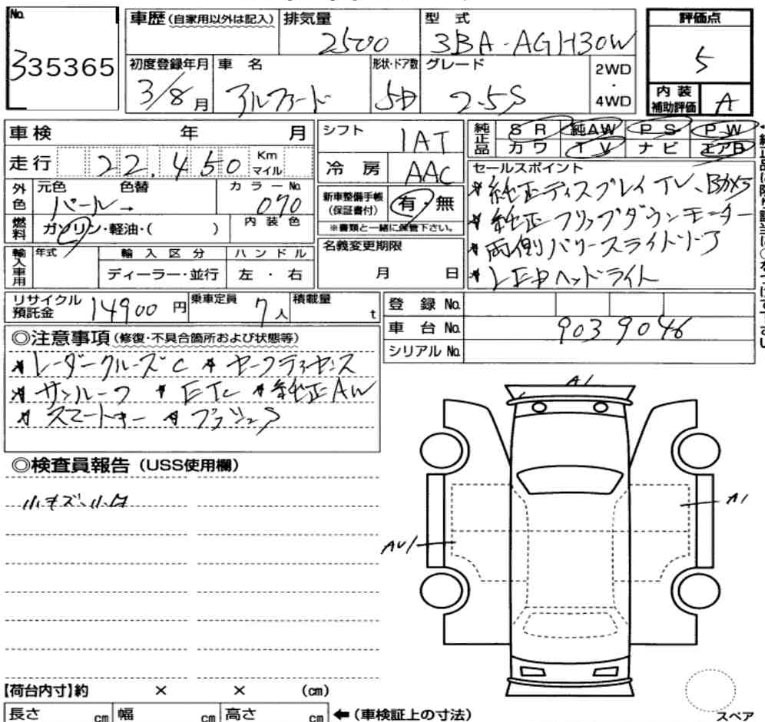 No. 335365
車歴(自家用以外は記入)
排気量 2500
型式 3BA-AGH30W
評価点 5
初度登録年月 3/8月
車名 アルファード
形状・ドア数 5D
グレード 2.5S
2WD・4WD
内装補助評価 A
車検 年 月
シフト IAT
純正品 SR 純AW PS PW
カワ TV ナビ エアB
走行 22,450 Km マイル
冷房 AAC
セールスポイント
★純正ディスプレイTV、Bカメラ
★純正フリップダウンモニター
★両側パワースライドドア
★LEDヘッドライト
外色 元色 色替 カラーNo. パール→ 070
新車整備手帳(保証書付) 有・無
※書類と一緒に保管下さい。
燃料 ガソリン・軽油・( ) 内装色
名義変更期限 月 日
輸入車用 年式 輸入区分 ハンドル
ディーラー・並行 左・右
リサイクル預託金 14900円
乗車定員 7人
積載量 t
登録No.
車台No. 9039046
シリアルNo.
◎注意事項(修復・不具合箇所および状態等)
★レーダークルーズC ★セーフティセンス
★サンルーフ ★ETC ★純正AW
★スマートキー ★プッシュS
◎検査員報告(USS使用欄)
小キズ、小凹
A1
A1
AU1
【荷台内寸】約 × × (cm)
長さ cm 幅 cm 高さ cm ←(車検証上の寸法)
スペア